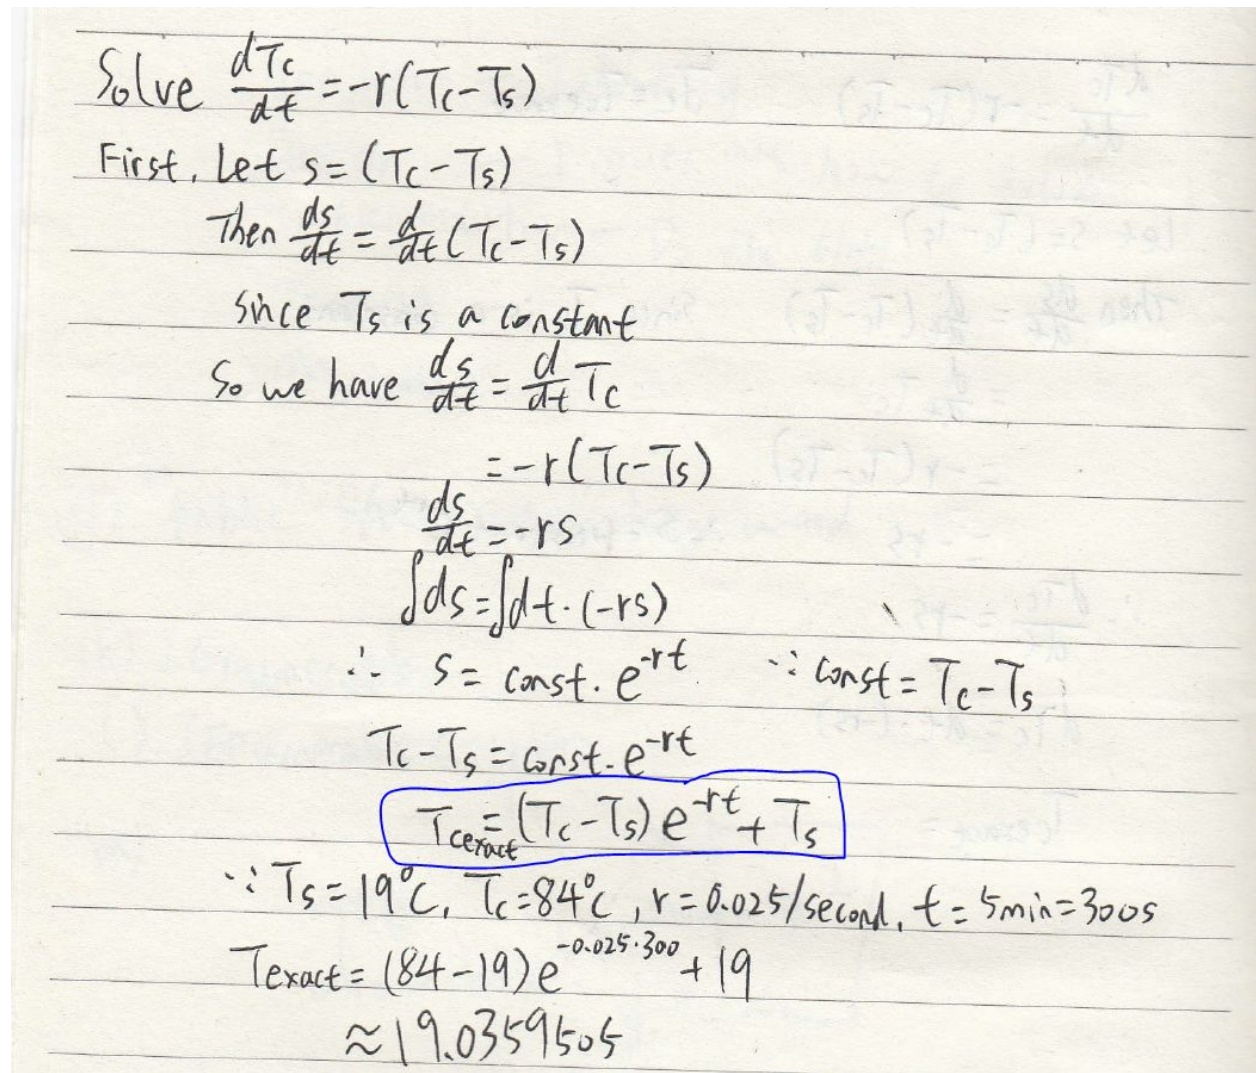 Solve dTc/dt = -r(Tc-Ts)
First. Let s = (Tc-Ts)
Then ds/dt = d/dt (Tc-Ts)
since Ts is a constant
So we have ds/dt = d/dt Tc
= -r(Tc-Ts)
ds/dt = -rs
∫ds = ∫dt·(-rs)
∴ s = const. e^-rt ∵ const = Tc-Ts
Tc-Ts = const. e^-rt
Tcexact = (Tc-Ts) e^-rt + Ts
∵ Ts = 19°C, Tc = 84°C, r = 0.025/second, t = 5min = 300s
Texact = (84-19) e^-0.025·300 + 19
≈ 19.0359505